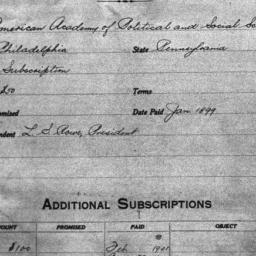 American Academy of Political and Social Sc
Philadelphia State Pennsylvania
Subscription
Terms
Date Paid Jan 1899
L. S. Rowe, President
ADDITIONAL SUBSCRIPTIONS
OUNT PROMISED PAID OBJECT
$100 Feb 1901